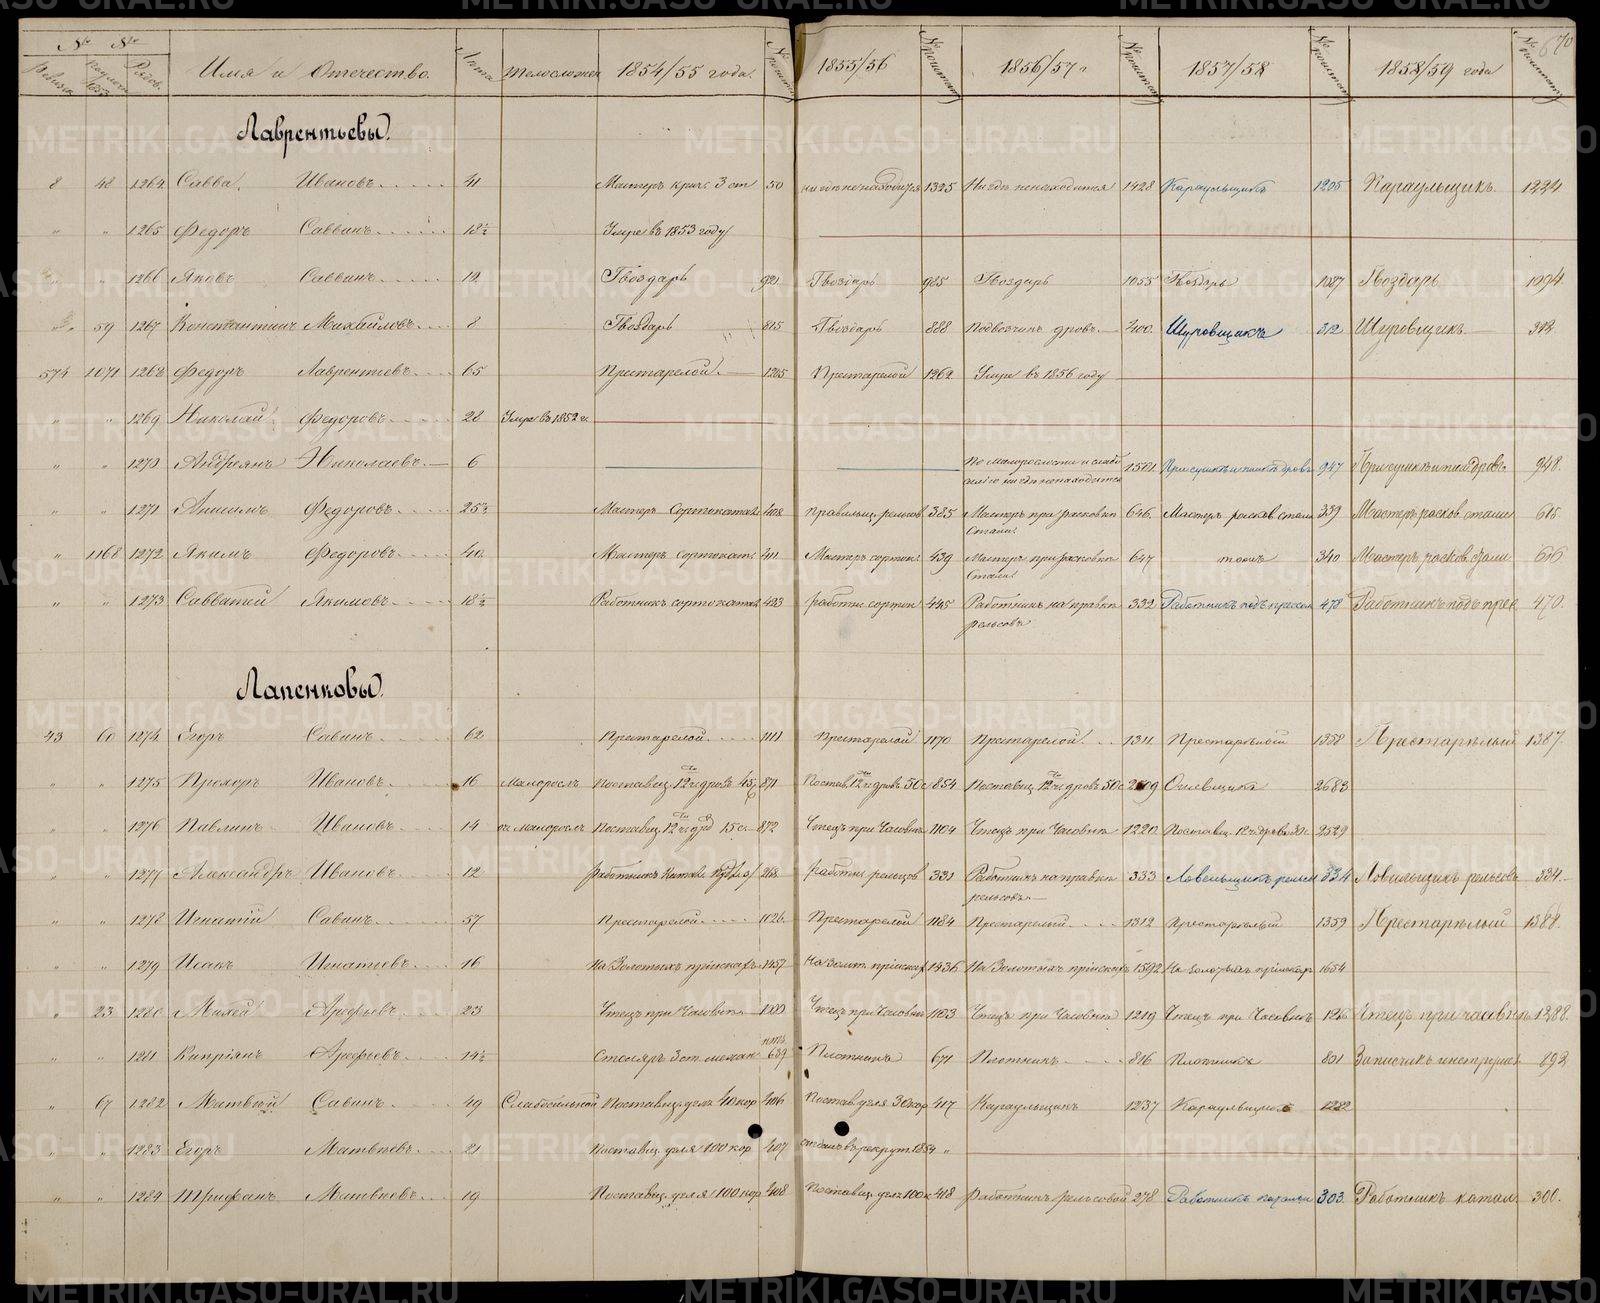 № №
Имя и Отчество. Лѣта 1854/55 года. 1855/56 1856/57 1857/58 1858/59 года 670
Лаврентьевы.
8 48 1264 Савва. Ивановъ 41 Мастеръ крич. 3 ст 50 нигдѣ не находится 1325 Нигдѣ ненаходится 1428 Караульщикъ 1205 Караульщик. 1224
" " 1265 Федоръ Саввинъ 18½ Умре въ 1853 году
" " 1266 Яковъ Саввинъ 12 Гвоздарь 921 Гвоздарь 985 Гвоздарь 1055 Гвоздарь 1087 Гвоздарь 1094
" 59 1267 Константинъ Михайловъ 8 Гвоздарь 815 Гвоздарь 888 Подвозчикъ дровъ 400 Шуровщикъ 312 Шуровщикъ 313
574 1071 1268 Федоръ Лаврентьевъ 65 Престарелой 1205 Престарелой 1262 Умре въ 1856 году
" " 1269 Николай Федоровъ 28 Умре въ 1852 г.
" " 1270 Андреянъ Николаевъ 6 По малорослости и слабо 1501 947 948
силію нигдѣ ненаходится
" " 1271 Федоровъ 25½ Мастеръ Сортокатал 408 правильщ. рельсов 385 Мастеръ при расковки 646 Мастеръ расков. стали 339 Мастеръ расков стали 615
Стали
" 1168 1272 Якимъ Федоровъ 40 Мастеръ сортокат. 411 Мастеръ сорток. 439 Мастеръ при расковки 647 тоже 340 Мастеръ расков. стали 616
Стали
" " 1273 Савватей Якимовъ 18½ Работникъ сортокатал 423 работн. сорток 445 Работникъ на правки 332 Работникъ подъ пресом 478 Работникъ подъ прес 470.
рельсовъ
Лапенковы.
43 60 1274 Егоръ Савинъ 62 Престарелой 1111 Престарелой 1170 Престарелой 1311 Престарѣлой 1358 Престарѣлый 1387.
" " 1275 Прохоръ Ивановъ 16 Малоросль Поставщ. 12 ч дровъ 45 871 Постав. 12 ч дровъ 50 с 854 Поставщ. 12 ч дровъ 50 с Огневщикъ 2683
" " 1276 Павлинъ Ивановъ 14 оч малоросль Поставщ. 12 ч др 15 с 872 Чтецъ при Часовни 1104 Чтецъ при Часовни 1220 2529
" " 1277 Александръ Ивановъ 12 268 работн. рельсов 331 Работникъ на правки 333 Ловельщикъ рельсов 334 Ловильщикъ рельсовъ 334
рельсовъ
" " 1278 Игнатій Савинъ 57 Престарелой 1126 Престарелой 1184 Престарелой 1312 Престарѣлый 1359 Престарѣлый 1388.
" " 1279 Исакъ Игнатьевъ 16 На Золотыхъ пріискахъ 1457 На золот. пріиск. 1436 На Золотыхъ пріискахъ 1592 На золотыхъ пріискахъ 1654
" 23 1280 Михей Арефьевъ 23 Чтецъ при Часовни Чтецъ при Часовни 1103 Чтецъ при Часовни 1219 Чтецъ при Часовнѣ 1266 Чтецъ при часовнѣ 1288.
" " 1281 Кипріянъ Арефьевъ 14½ Столяръ 3 ст. механ 689 Плотникъ 671 Плотникъ 816 Плотникъ 801 892
" 67 1282 Матвѣй Савинъ 49 Слабосильной Поставщ. угля 40 кор 406 Постав угля 30 кор 417 Караульщикъ 1237 Караульщикъ 1222
" " 1283 Егоръ Матвѣевъ 21 Поставщ. угля 100 кор. 407 отданъ въ рекрут. 1854
" " 1284 Трифанъ Матвѣевъ 19 Поставщ. угля 100 кор 408 Поставщ угля 100 к 418 Работникъ рельсовой 278 Работникъ 303. Работникъ катал. 300.